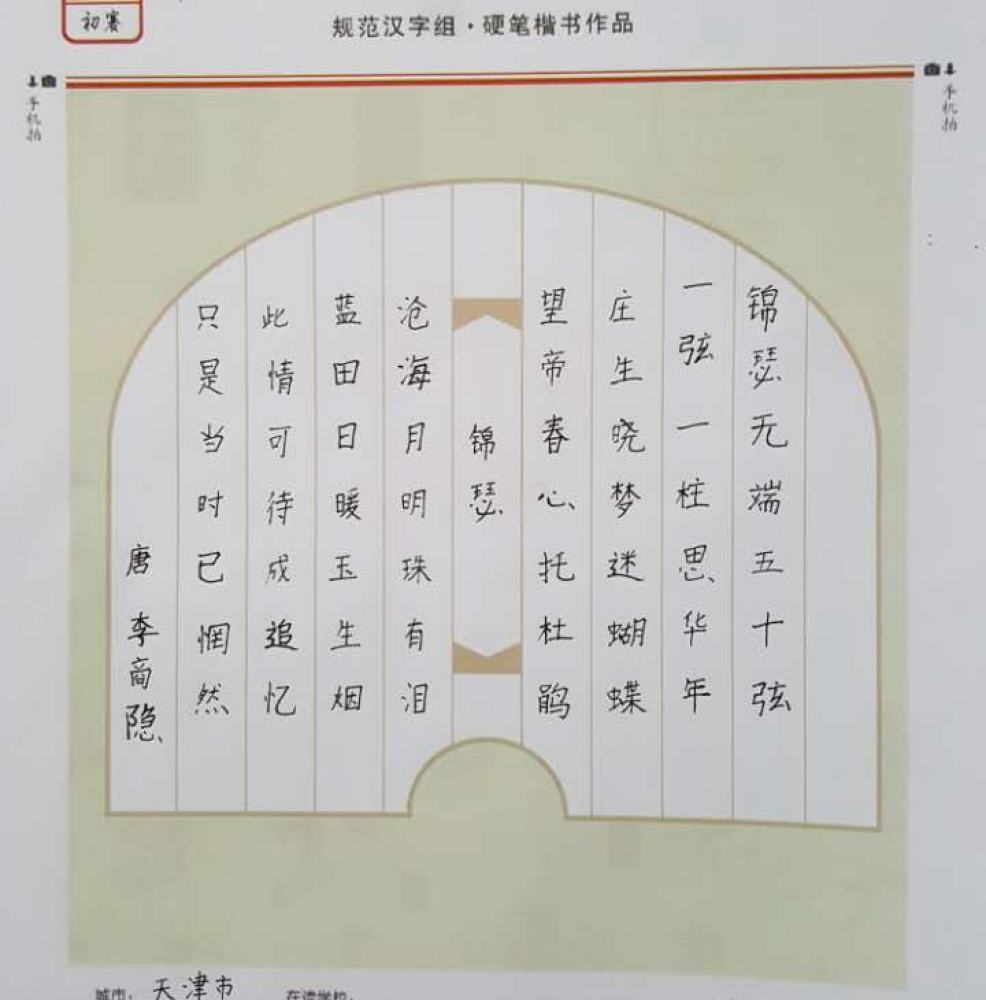 初赛
规范汉字组·硬笔楷书作品
手机拍
手机拍
锦瑟无端五十弦
一弦一柱思华年
庄生晓梦迷蝴蝶
望帝春心托杜鹃
锦瑟
沧海月明珠有泪
蓝田日暖玉生烟
此情可待成追忆
只是当时已惘然
唐 李商隐
城市: 天津市 在读学校: